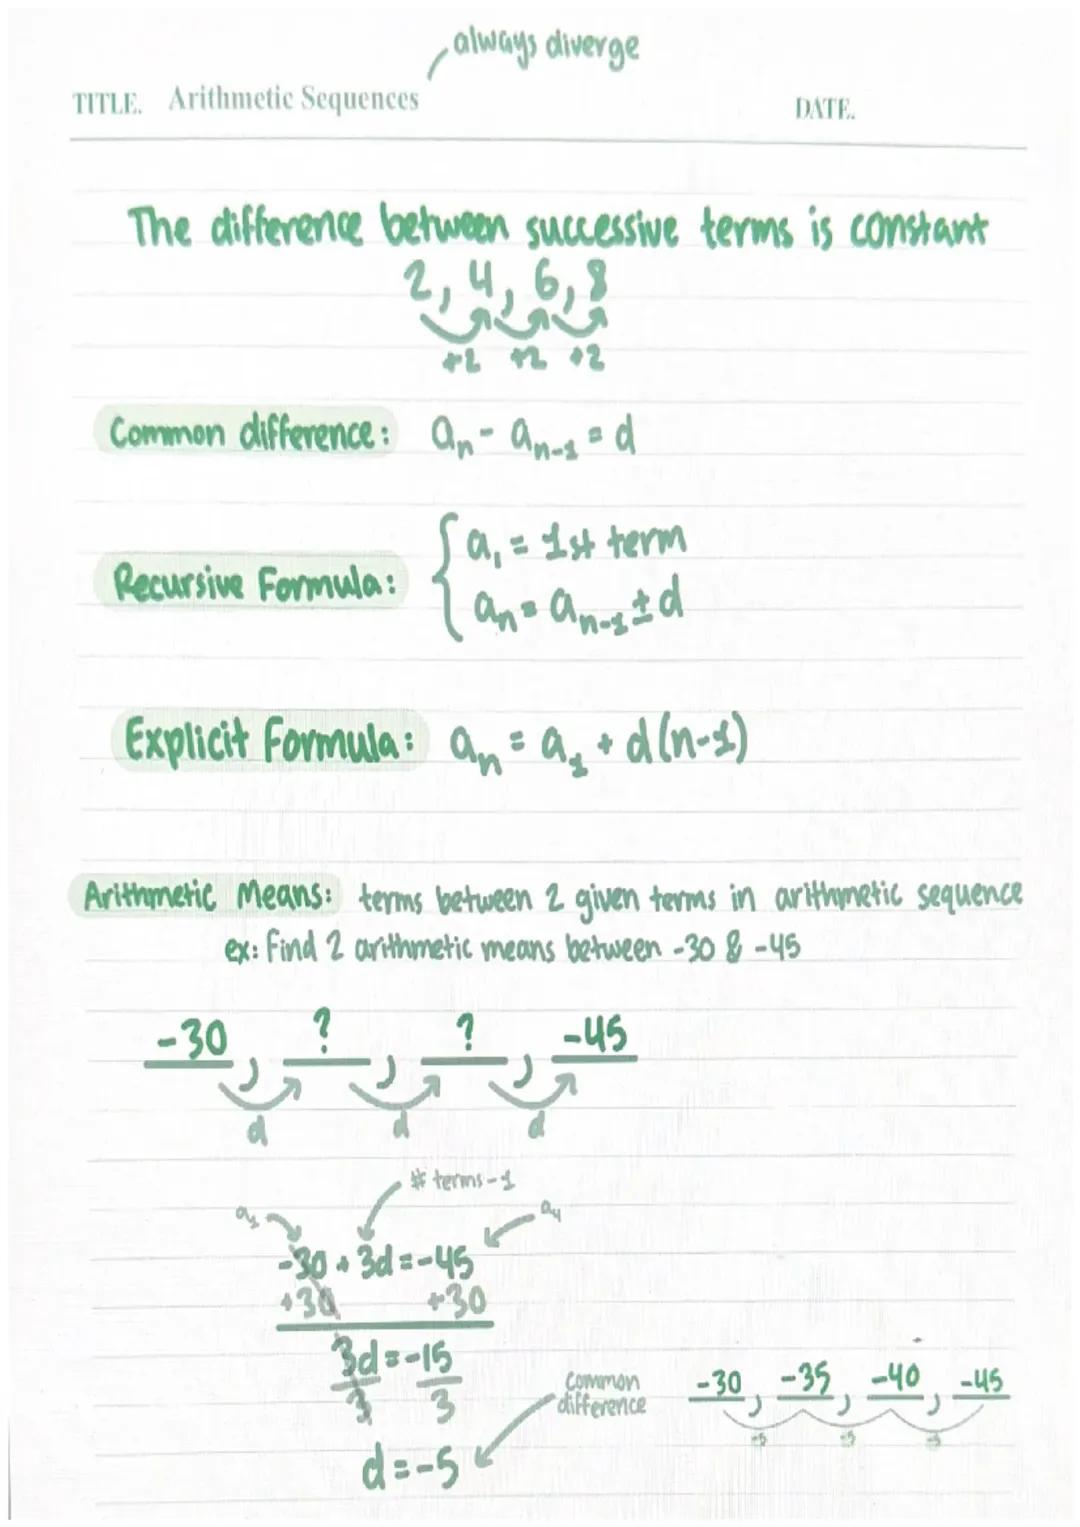 always diverge
TITLE. Arithmetic Sequences
DATE.
The difference between successive terms is constant
2, 4, 6, 8
+2 +2 +2
Common difference: aₙ - aₙ₋₁ = d
Recursive Formula: { a₁ = 1st term
aₙ = aₙ₋₁ ± d
Explicit Formula: aₙ = a₁ + d(n-1)
Arithmetic Means: terms between 2 given terms in arithmetic sequence
ex: Find 2 arithmetic means between -30 & -45
-30, ?, ?, -45
d d d
# terms - 1
a₁ a₄
-30 + 3d = -45
+30 +30
3d = -15
3 3
d = -5
common
difference
-30, -35, -40, -45
-5 -5 -5